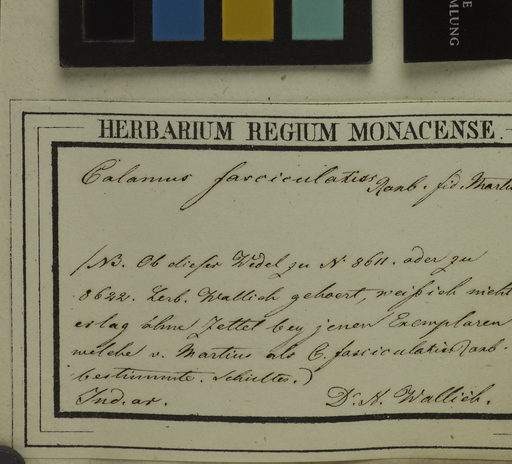 E
MLUNG
HERBARIUM REGIUM MONACENSE.
Calamus fasciculatus Roxb. fid. Martiu
(NB. Ob dieser Wedel zu N 8611. oder zu
8622. Herb. Wallich gehoert, weiß ich nicht
er lag ohne Zettel bey jenen Exemplaren
welche v. Martius als C. fasciculatus Roxb.
bestimmte. Schultes.)
Ind. or. Dr. N. Wallich.